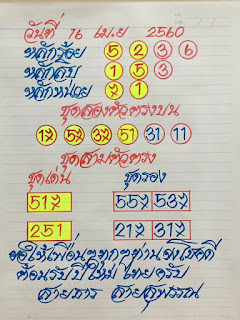 วันที่ 16 เม.ย 2560
หลักร้อย 5 2 3 6
หลักสิบ 1 5 3
หลักหน่วย 7 1
ชุดสองตัวตรงบน
17 57 37 51 31 11
ชุดสามตัวตรง
ชุดเด่น ชุดรอง
517 557 537
251 217 317
ขอให้เพื่อนๆทุกๆท่านจงโชคดี
ต้อนรับปีใหม่ไทยครับ
สายธาร สายสุพรรณ